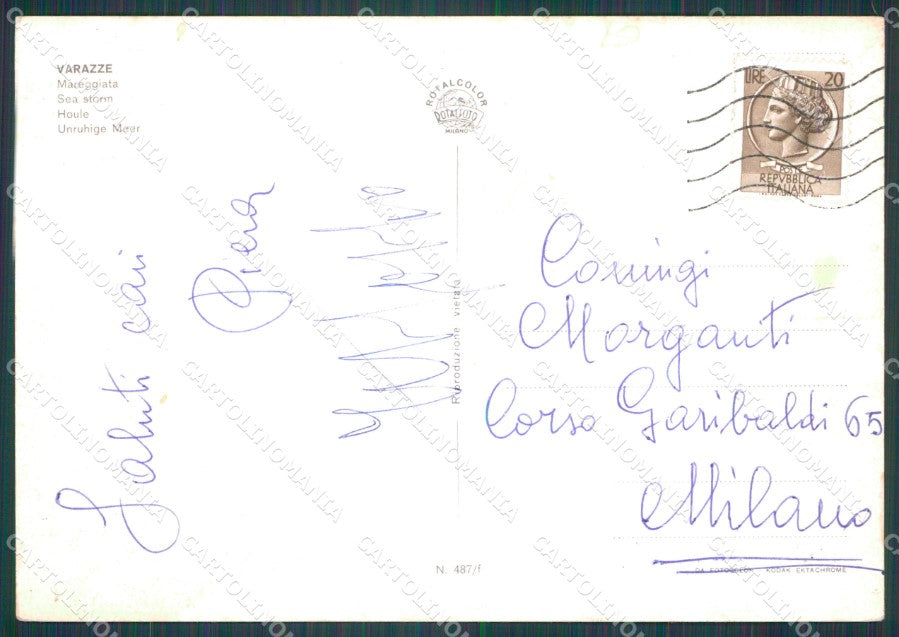 VARAZZE
Mareggiata
Sea storm
Houle
Unruhige Meer
ROTALCOLOR
ROTALFOTO
MILANO
LIRE 20
POSTE
REPVBBLICA
ITALIANA
Saluti cari
Piera
Riproduzione vietata
Coniugi
Morganti
Corso Garibaldi 65
Milano
N. 487/f
DA FOTOCOLOR KODAK EKTACHROME
CARTOLINOMANIA